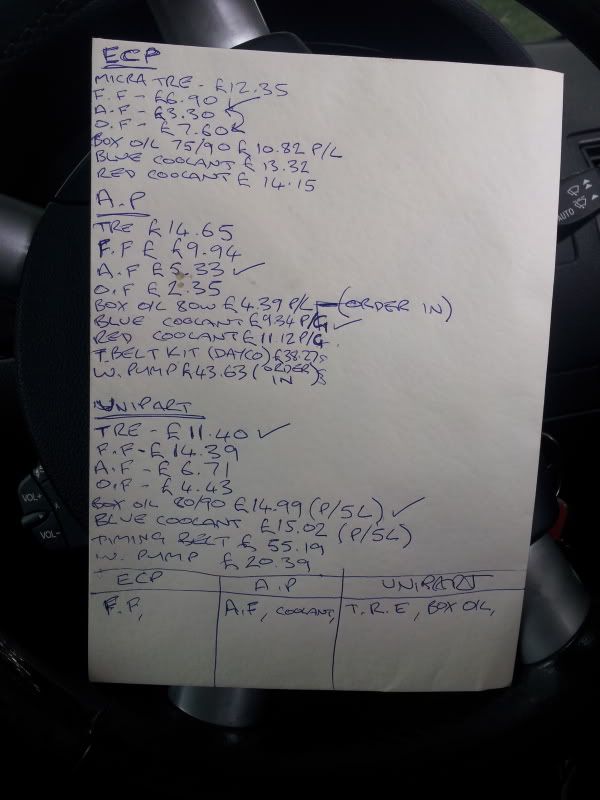 ECP
MICRA TRE - £12.35
F.F - £6.90 ✓
A.F - £3.30
O.F - £7.60
BOX OIL 75/90 £10.82 P/L
BLUE COOLANT £ 13.32
RED COOLANT £ 14.15
A.P
TRE £14.65
F.F £ £9.94
A.F £5.33 ✓
O.F £2.35
BOX OIL 80W £4.39 P/L - (ORDER IN)
BLUE COOLANT £9.34 P/G ✓
RED COOLANT £11.12 P/G
T.BELT KIT (DAYCO) £38.27
W. PUMP £43.63 (ORDER IN)
UNIPART
TRE - £11.40 ✓
F.F - £14.39
A.F - £6.71
O.F - £4.43
BOX OIL 80/90 £14.99 (P/5L) ✓
BLUE COOLANT £15.02 (P/5L)
TIMING BELT £ 55.19
W. PUMP £20.39
ECP A.P UNIPART
F.F, A.F, COOLANT, T.R.E, BOX OIL,
AUTO
VOL+
VOL-